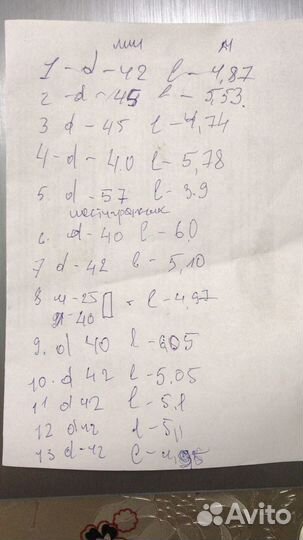 мм м
1 - d - 42 l - 4,87
2 - d - 45 l - 5,53.
3 d - 45 l - 4,74
4 - d - 40 l - 5,78
5. d - 57 l - 3.9
шестигранник
6. d - 40 l - 6.0
7 d - 42 l - 5,10
8 - 25 l - 4,97
- 40
9. d 40 l - 6.05
10. d 42 l - 5.05
11 d 42 l - 5.1
12 d 42 l - 5,1
13 d - 42 l -
Avito